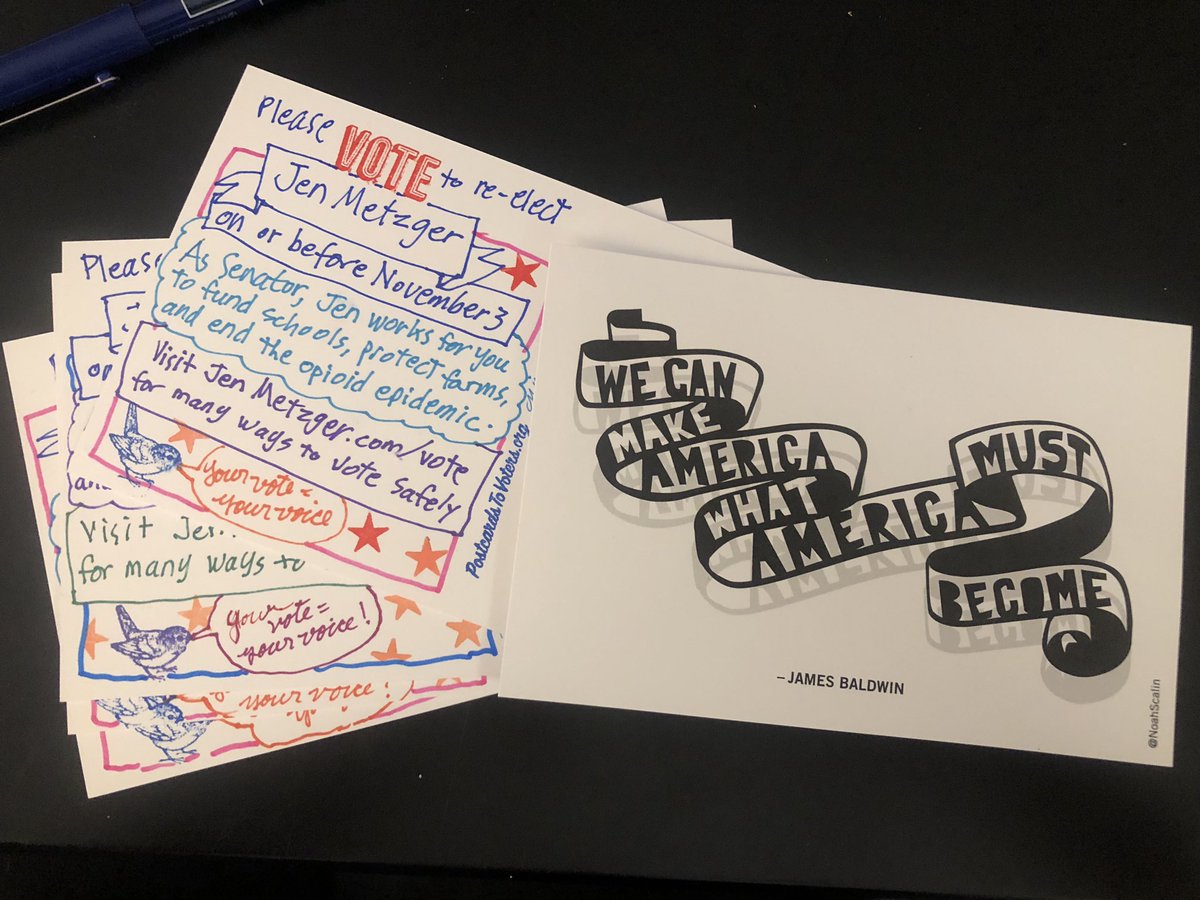 Please VOTE to re-elect
Jen Metzger
on or before November 3
As Senator, Jen works for you
to fund schools, protect farms,
and end the opioid epidemic.
Visit Jen Metzger.com/vote
for many ways to vote safely
your vote =
your voice
PostcardsToVoters.org
Please
on
and
Visit Jen
for many ways to
your
vote =
your voice!
your voice!
WE CAN
MAKE
AMERICA
WHAT
AMERICA
MUST
BECOME
–JAMES BALDWIN
@NoahScalin